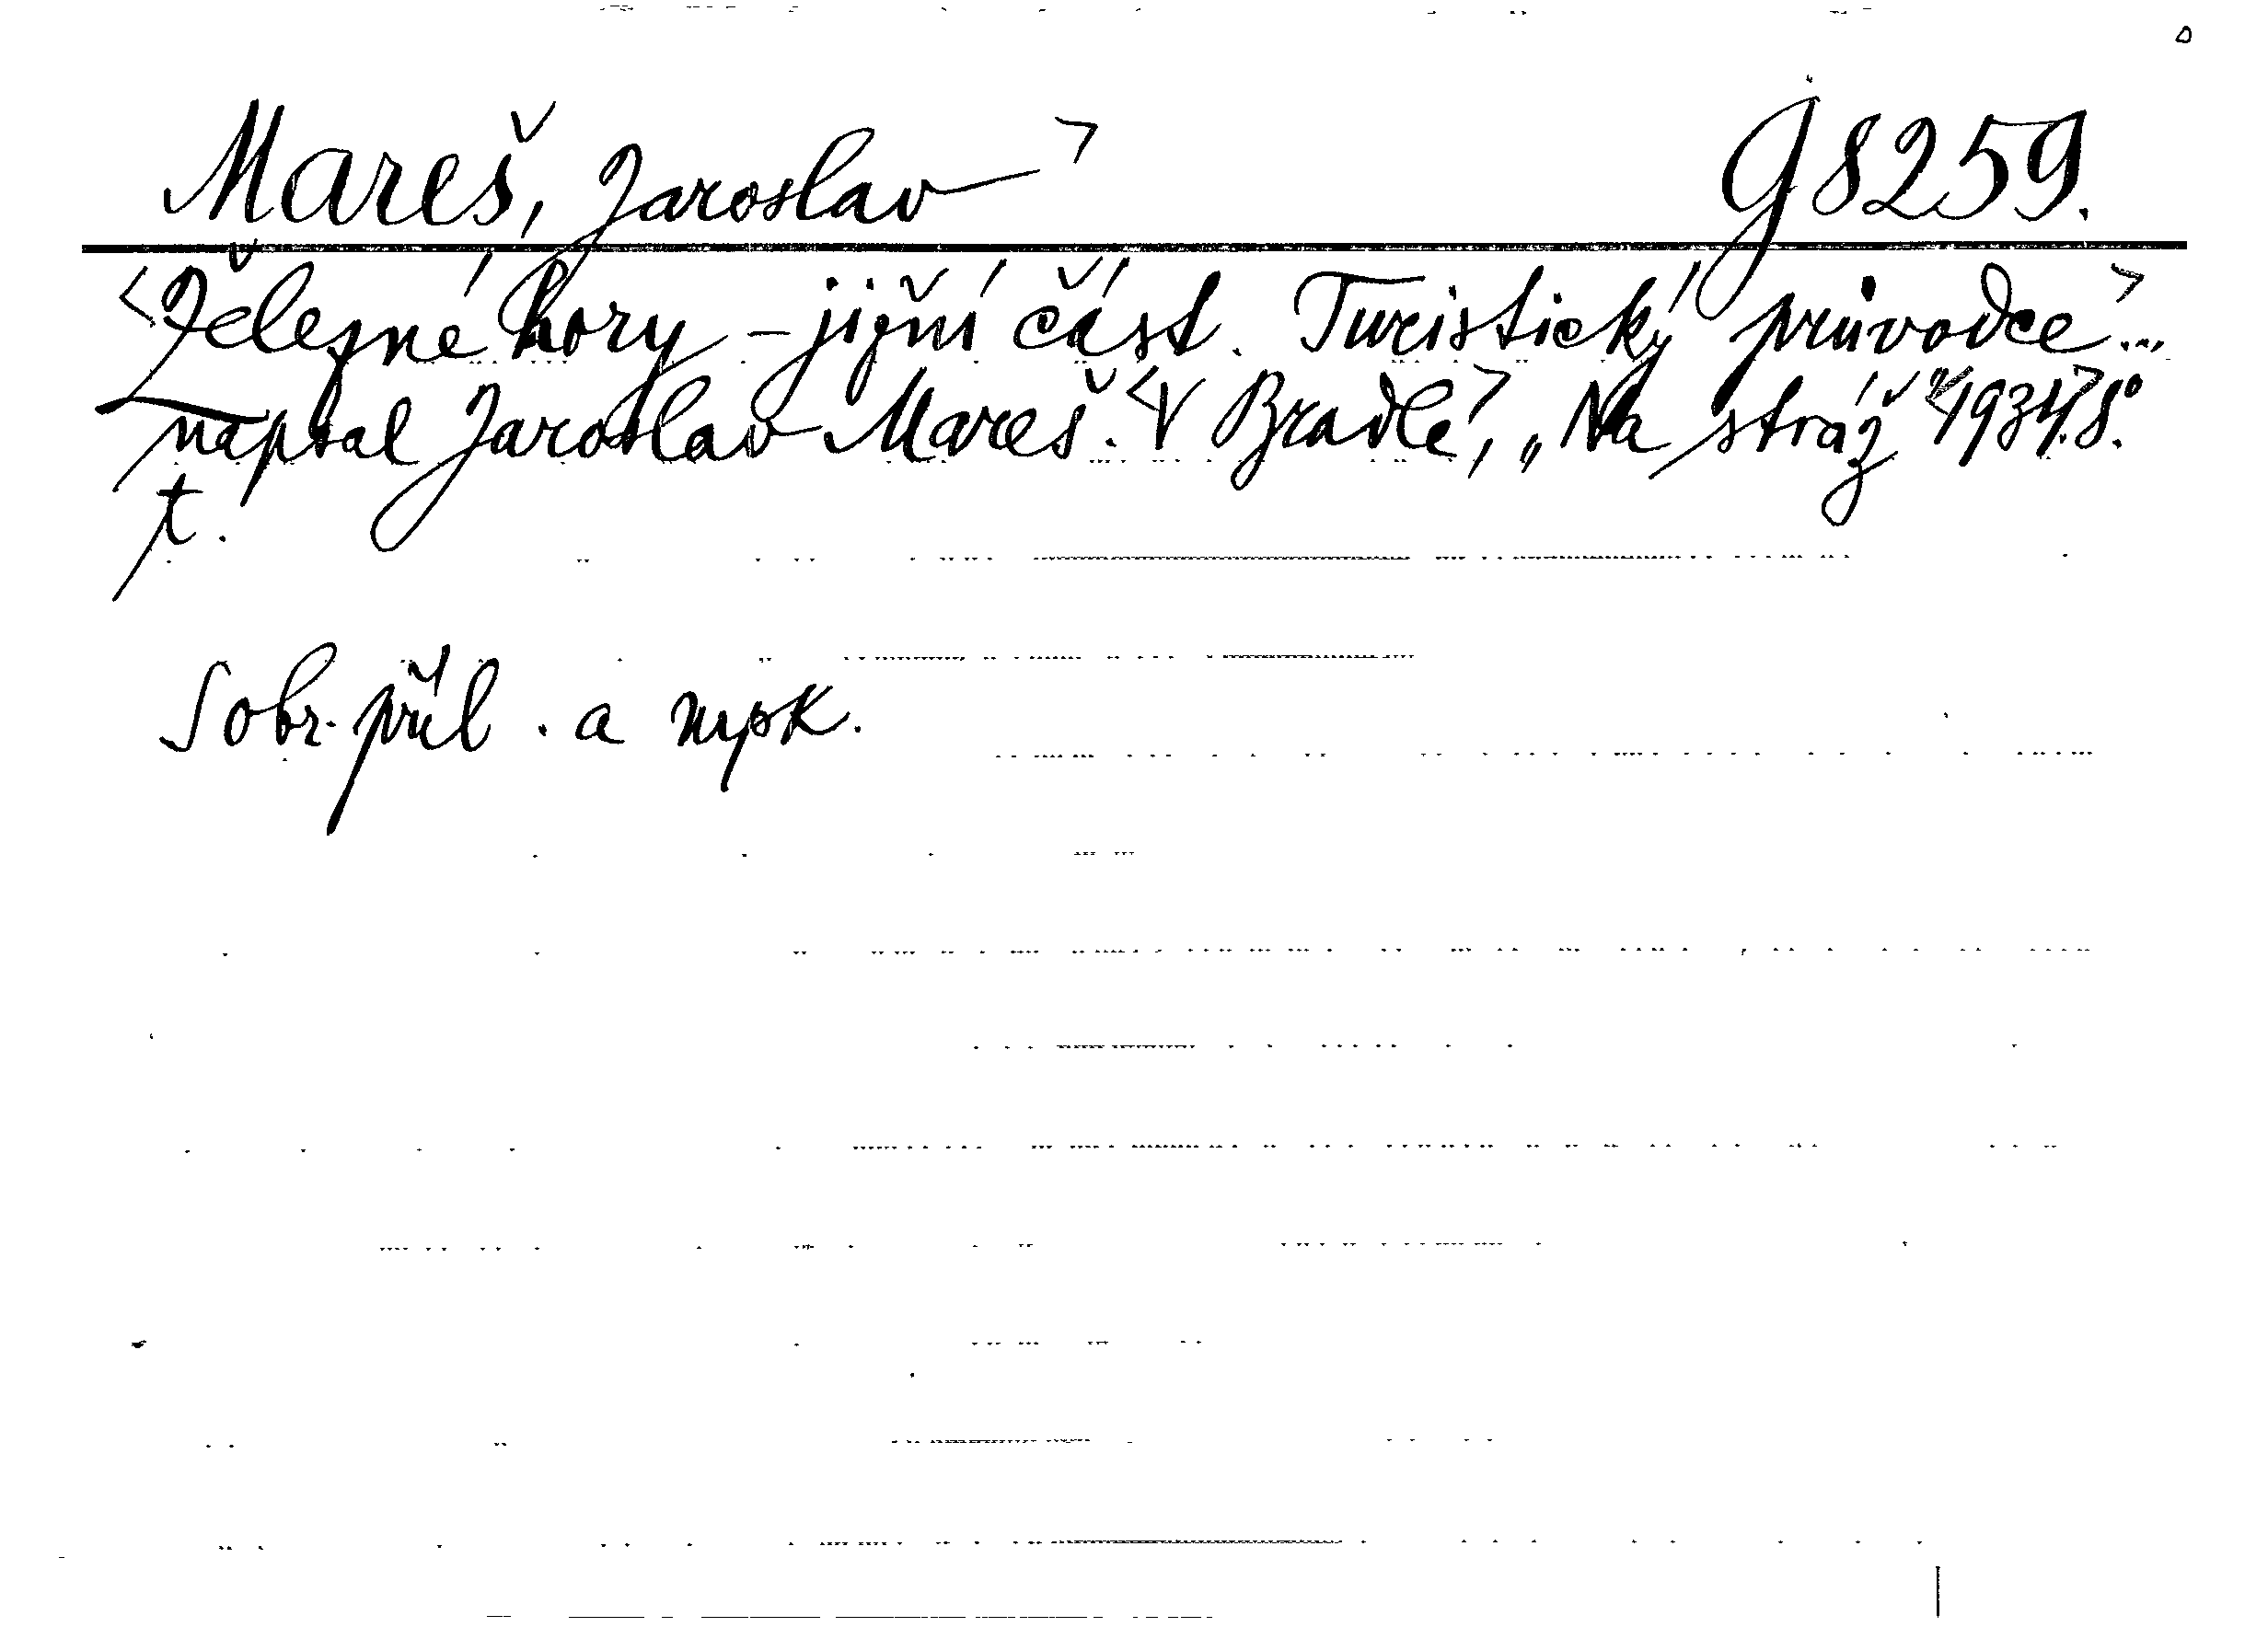 Mareš, Jaroslav> G 8259.
<Železné hory – jižní část. Turistický průvodce>...
napsal Jaroslav Mareš. <V Bradle>, „Na stráž“ <1934>. 8°.
t.
S obr. příl. a mpk.